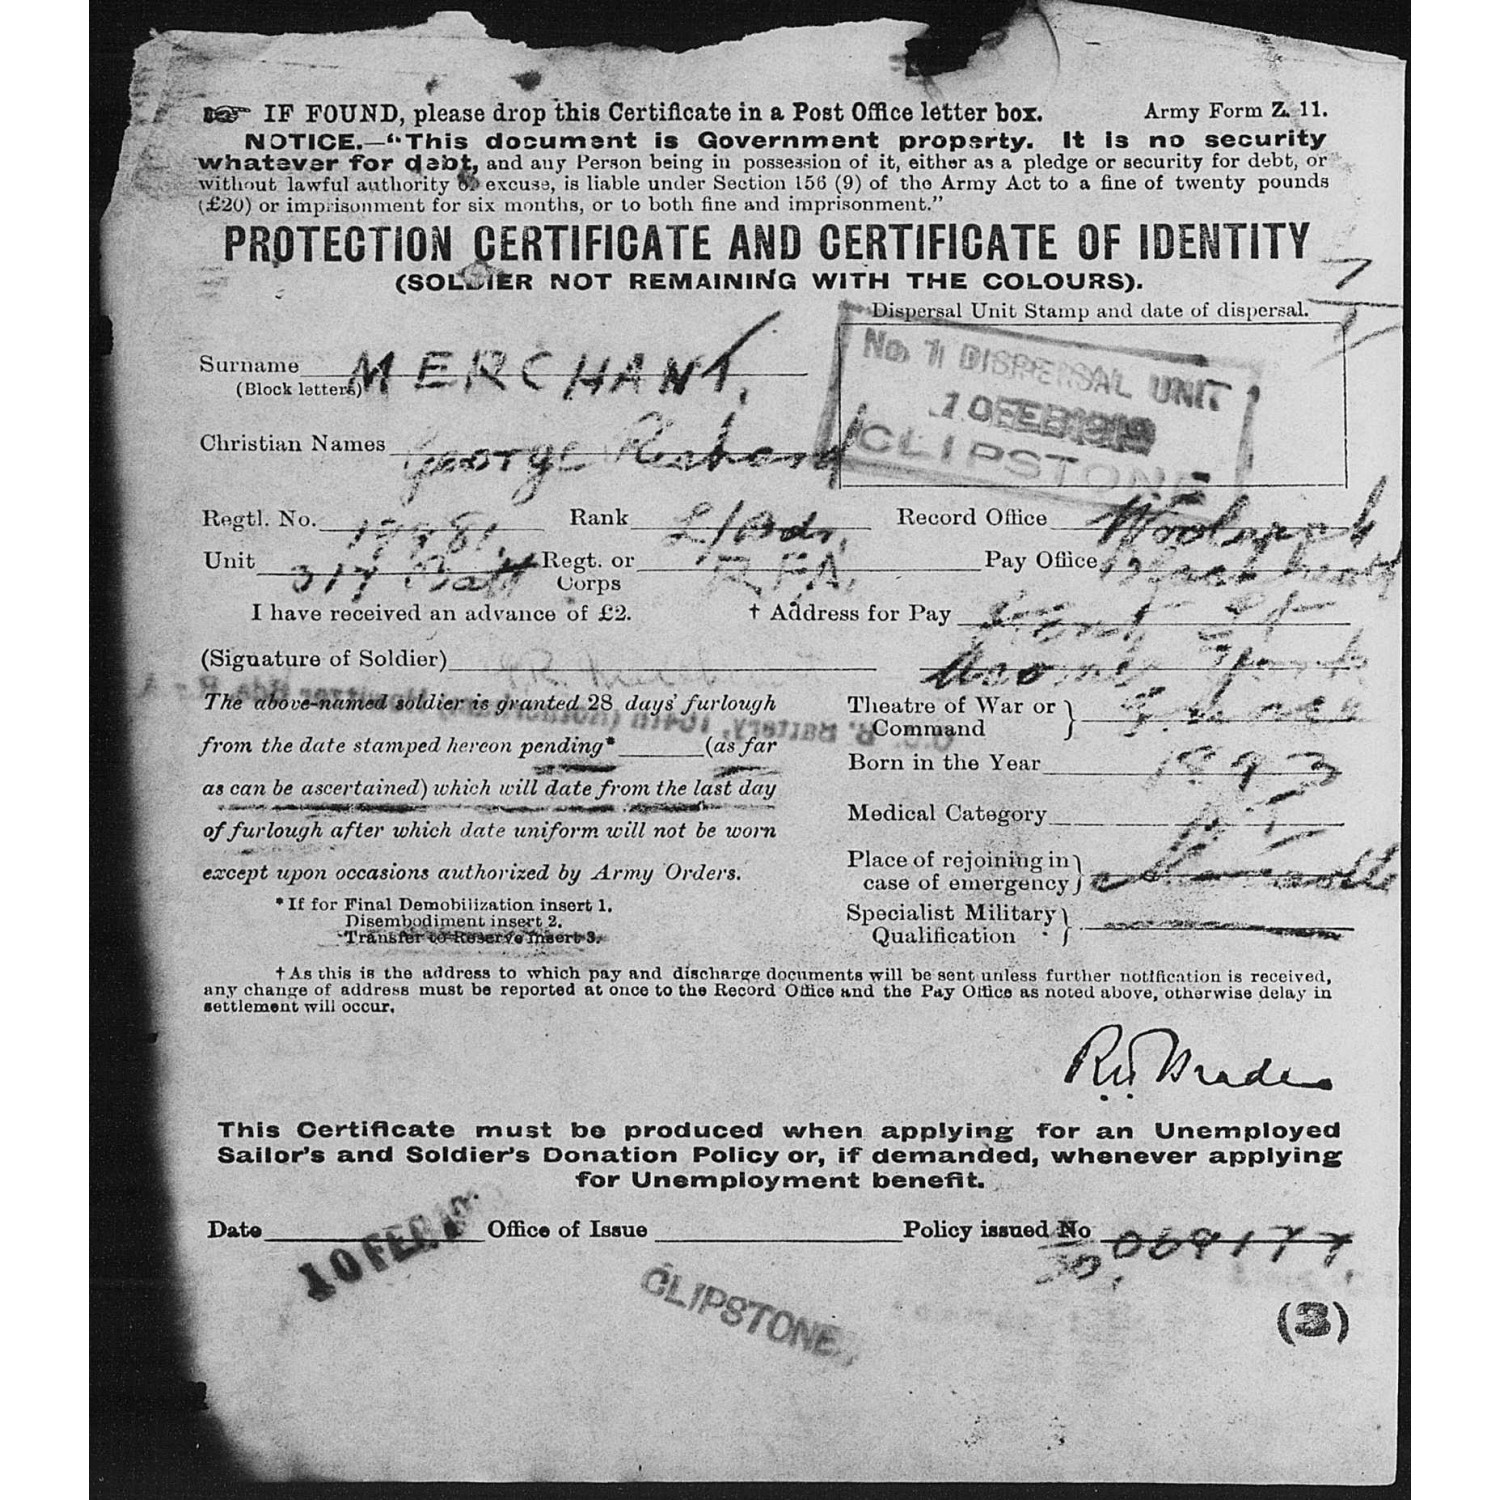 IF FOUND, please drop this Certificate in a Post Office letter box. Army Form Z. 11.
NOTICE.—"This document is Government property. It is no security
whatever for debt, and any Person being in possession of it, either as a pledge or security for debt, or
without lawful authority or excuse, is liable under Section 156 (9) of the Army Act to a fine of twenty pounds
(£20) or imprisonment for six months, or to both fine and imprisonment."
PROTECTION CERTIFICATE AND CERTIFICATE OF IDENTITY
(SOLDIER NOT REMAINING WITH THE COLOURS).
Dispersal Unit Stamp and date of dispersal.
No. 1 DISPERSAL UNIT
10 FEB 1919
CLIPSTONE
Surname MERCHANT.
(Block letters)
Christian Names George Richard
Regtl. No. Rank L/Bdr. Record Office Woolwich
Unit 317 Batt Regt. or Corps R.F.A. Pay Office Blackheath
I have received an advance of £2. † Address for Pay
(Signature of Soldier) G R Merchant
The above-named soldier is granted 28 days' furlough
from the date stamped hereon pending* (as far
as can be ascertained) which will date from the last day
of furlough after which date uniform will not be worn
except upon occasions authorized by Army Orders.
*If for Final Demobilization insert 1.
Disembodiment insert 2.
Transfer to Reserve insert 3.
Theatre of War or Command France
Born in the Year 1893
Medical Category
Place of rejoining in case of emergency
Specialist Military Qualification
†As this is the address to which pay and discharge documents will be sent unless further notification is received,
any change of address must be reported at once to the Record Office and the Pay Office as noted above, otherwise delay in
settlement will occur.
This Certificate must be produced when applying for an Unemployed
Sailor's and Soldier's Donation Policy or, if demanded, whenever applying
for Unemployment benefit.
Date 10 FEB 19 Office of Issue CLIPSTONE Policy issued No 069177.
(3)